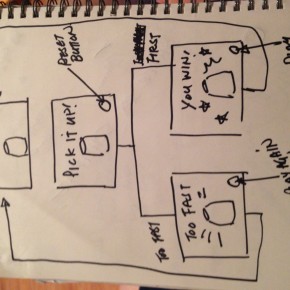 RESET
BUTTON
PICK IT UP!
FIRST
YOU WIN!
TOO FAST
TOO FAST